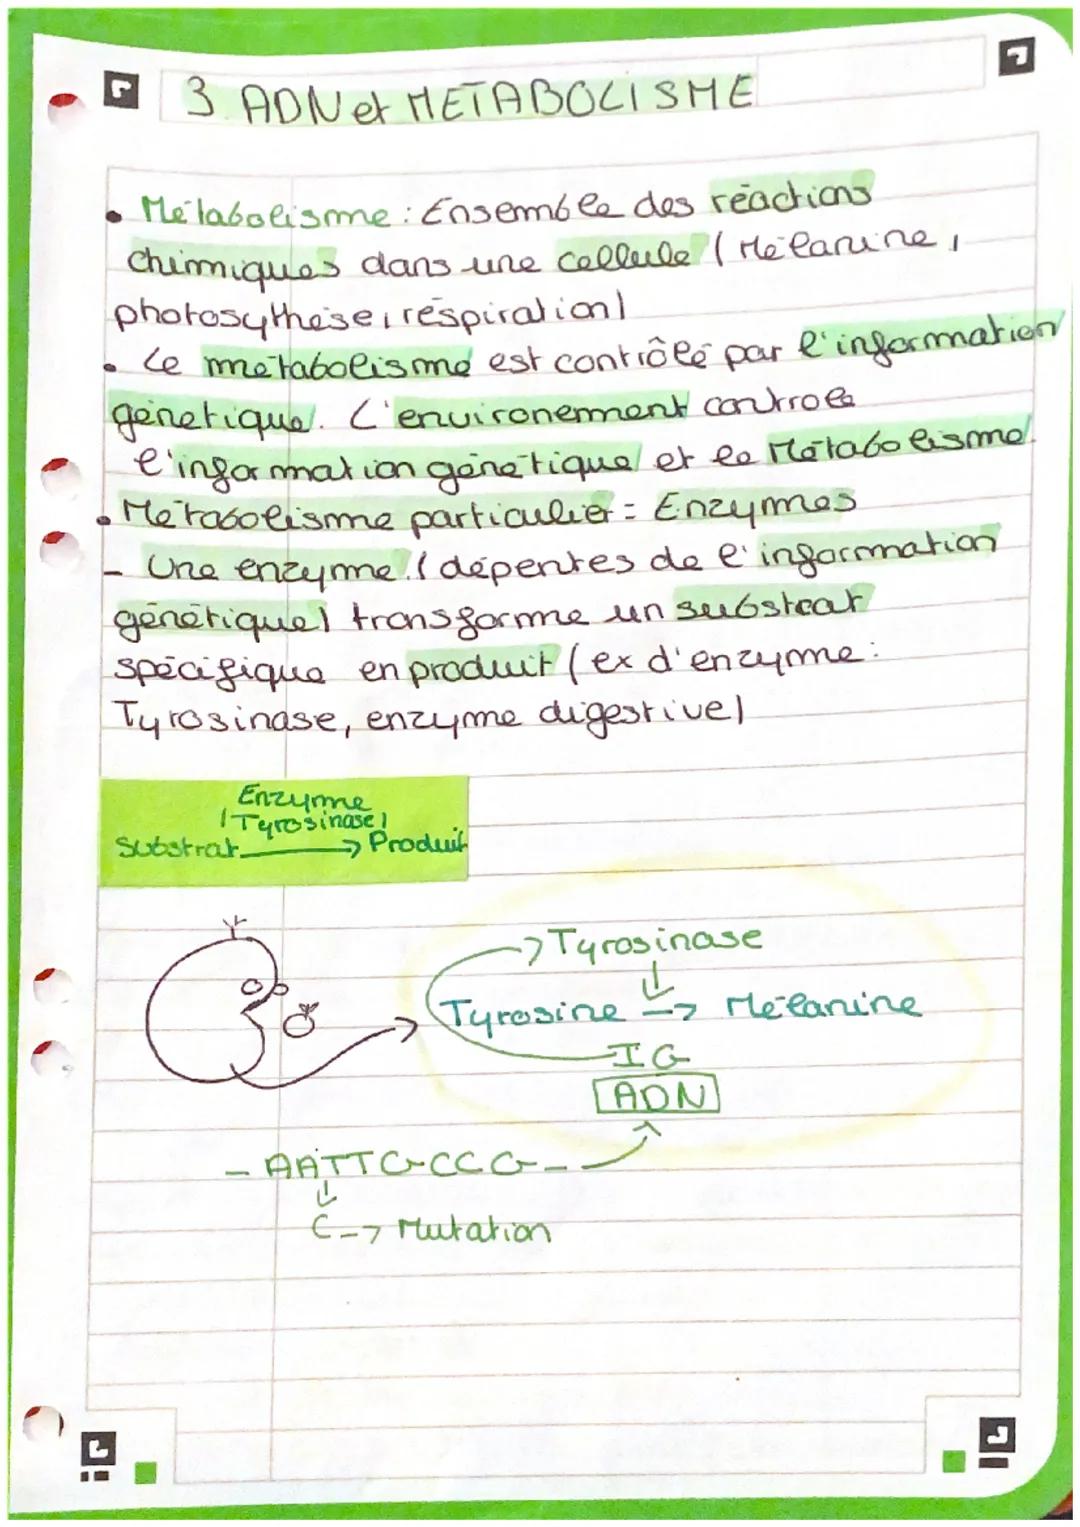 3 ADN et METABOLISME
• Métabolisme : Ensemble des réactions
chimiques dans une cellule (Mélanine,
photosythèse, respiration)
• Le métabolisme est contrôlé par l'information
génétique. L'environement controle
l'information génétique et le Métabolisme.
• Métabolisme particulier = Enzymes
- Une enzyme (dépentes de l'information
génétique) transforme un substrat
spécifique en produit (ex d'enzyme :
Tyrosinase, enzyme digestive)
Enzyme
(Tyrosinase)
Substrat → Produit
→ Tyrosinase
↓
Tyrosine → Mélanine
IG
ADN
- AATTGCCG -
↓
C → Mutation